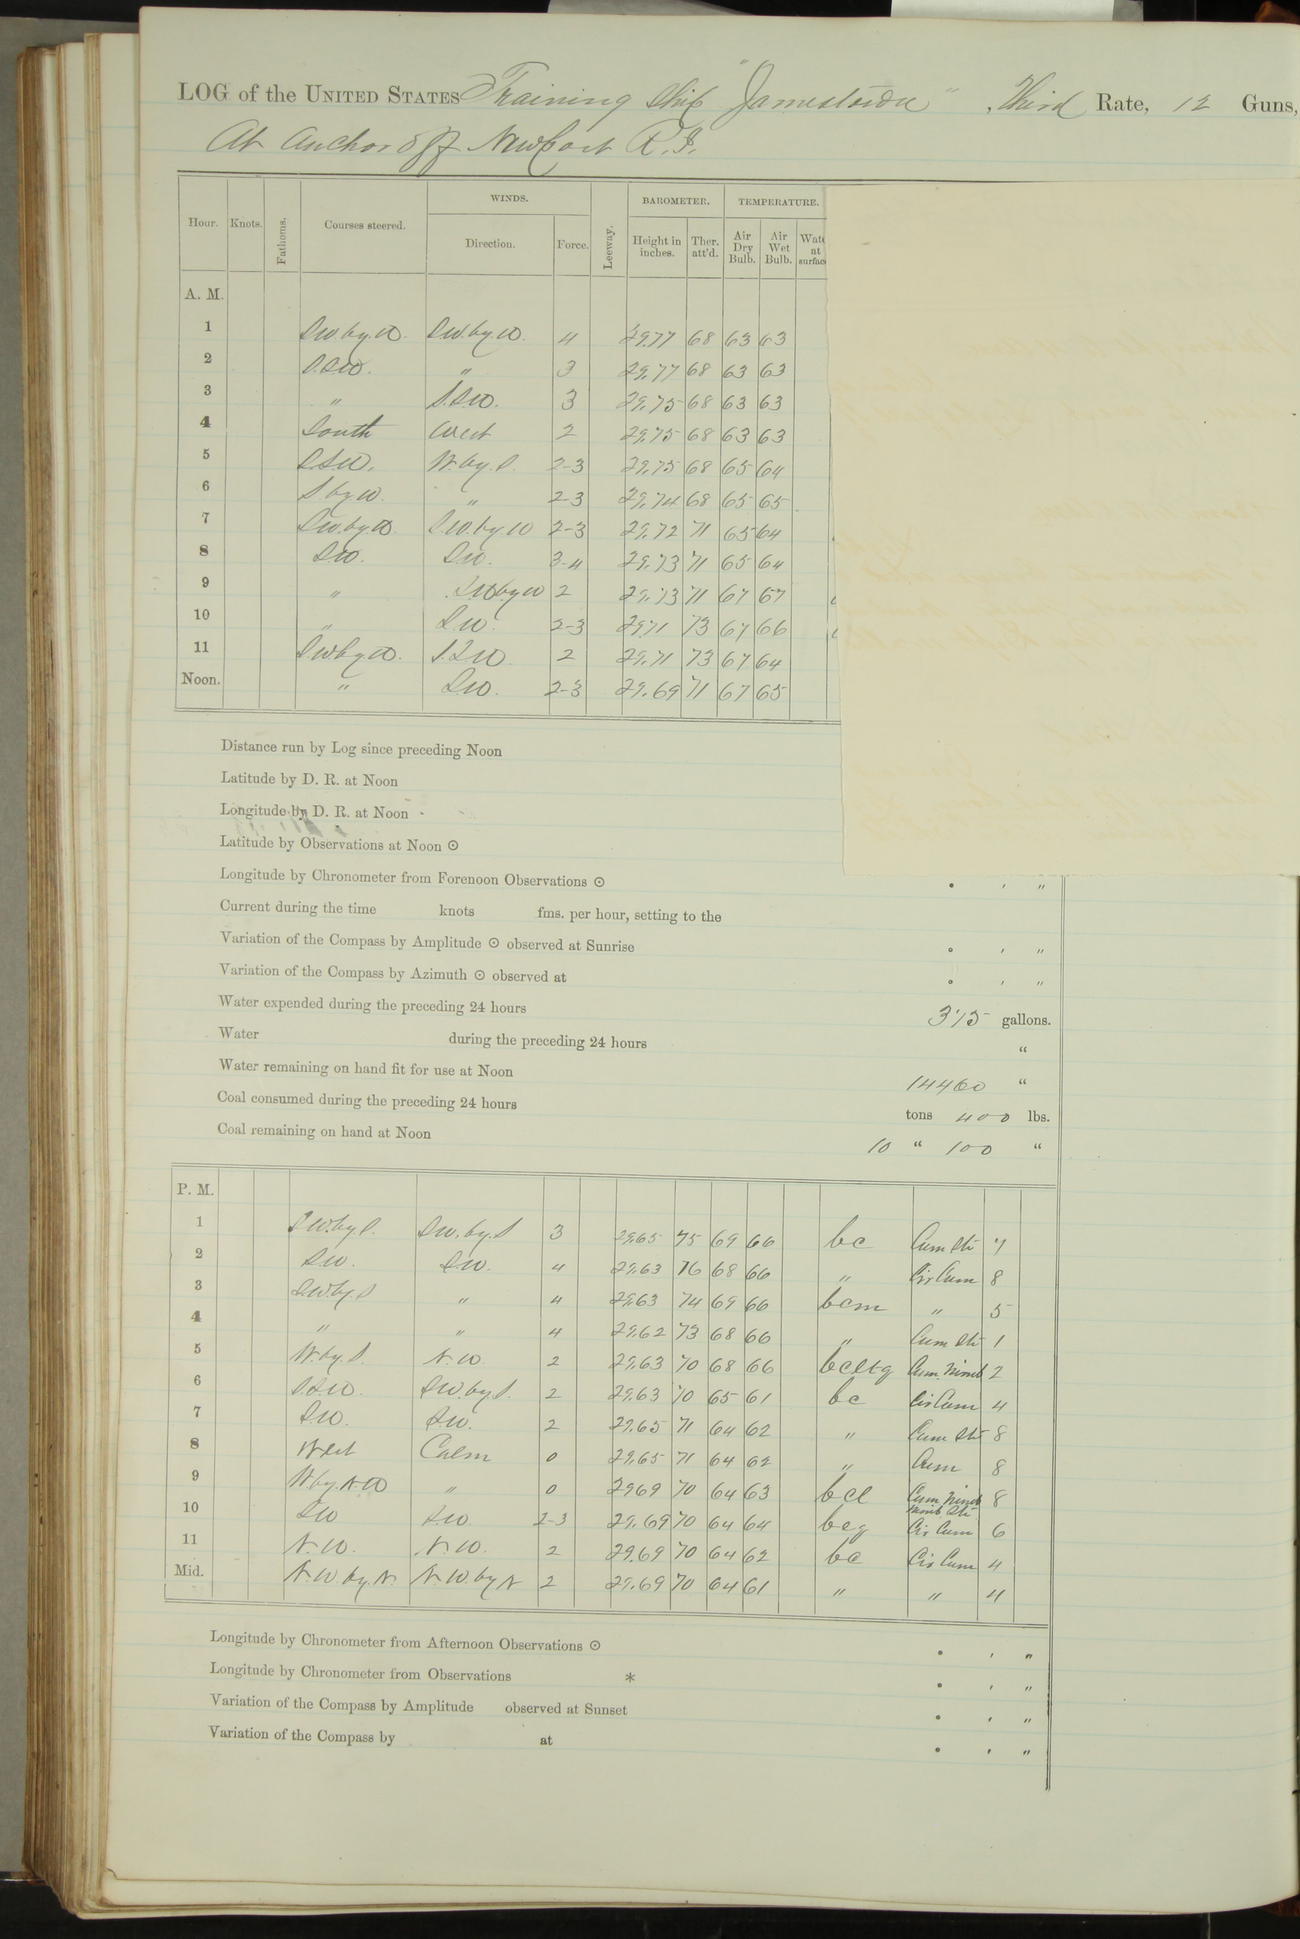 LOG of the UNITED STATES Training Ship "Jamestown", Third Rate, 12 Guns,
At Anchor off Newport R.I.
WINDS. BAROMETER. TEMPERATURE.
Hour. Knots. Fathoms. Courses steered. Direction. Force. Leeway. Height in inches. Ther. att'd. Air Dry Bulb. Air Wet Bulb. at
A. M.
1 SW.by.W. SW.by.W. 4 29.77 68 63 63
2 S.SW. " 3 29.77 68 63 63
3 " S.SW. 3 29.75 68 63 63
4 South West 2 29.75 68 63 63
5 S.SW. W.by.S. 2-3 29.75 68 65 64
6 S by W. " 2-3 29.74 68 65 65
7 SW.by.W. SW.by W 2-3 29.72 71 65 64
8 SW. SW. 3-4 29.73 71 65 64
9 " SW by W 2 29.73 71 67 67
10 " SW. 2-3 29.71 73 67 66
11 SW by W. S.SW 2 29.71 73 67 64
Noon. " SW. 2-3 29.69 71 67 65
Distance run by Log since preceding Noon
Latitude by D. R. at Noon
Longitude by D. R. at Noon
Latitude by Observations at Noon ⊙
Longitude by Chronometer from Forenoon Observations ⊙ ° ' "
Current during the time knots fms. per hour, setting to the
Variation of the Compass by Amplitude ⊙ observed at Sunrise ° ' "
Variation of the Compass by Azimuth ⊙ observed at ° ' "
Water expended during the preceding 24 hours 315 gallons.
Water during the preceding 24 hours "
Water remaining on hand fit for use at Noon 14460 "
Coal consumed during the preceding 24 hours tons 400 lbs.
Coal remaining on hand at Noon 10 " 100 "
P. M.
1 SW.by.S. SW.by.S 3 29.65 75 69 66 bc Cum Str 7
2 SW. SW. 4 29.63 76 68 66 " Cir Cum 8
3 SW.by.S " 4 29.63 74 69 66 bcm " 5
4 " " 4 29.62 73 68 66 " Cum Str 1
5 W.by.S. N.W. 2 29.63 70 68 66 bcltg Cum. Nimb 2
6 S.SW. SW.by.S. 2 29.63 70 65 61 bc Cir Cum 4
7 SW. SW. 2 29.65 71 64 62 " Cum Str 8
8 West Calm 0 29.65 71 64 62 " Cum 8
9 W by. N.W " 0 29.69 70 64 63 bcl Cum Nimb 8
10 SW SW. 2-3 29.69 70 64 64 bcq Nimb Str Cir Cum 6
11 N.W. N.W. 2 29.69 70 64 62 bc Cir Cum 4
Mid. N.W. by. N. N.W. by N 2 29.69 70 64 61 " " 4
Longitude by Chronometer from Afternoon Observations ⊙ ° ' "
Longitude by Chronometer from Observations * ° ' "
Variation of the Compass by Amplitude observed at Sunset ° ' "
Variation of the Compass by at ° ' "